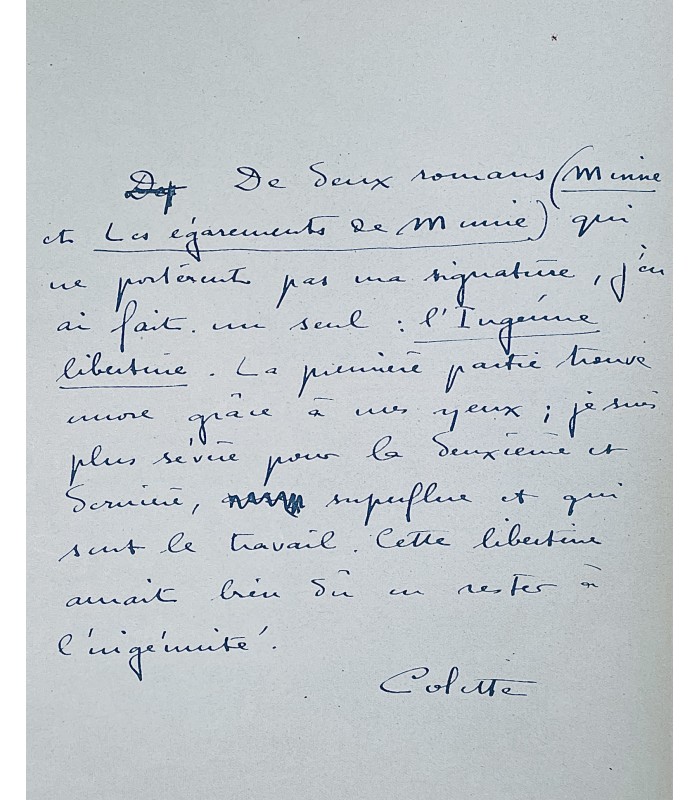 De deux romans (Minne
et Les égarements de Minne) qui
ne portèrent pas ma signature, j'en
ai fait un seul : l'Ingénue
libertine. La première partie trouve
encore grâce à mes yeux ; je suis
plus sévère pour la deuxième et
dernière, superflue et qui
sent le travail. Cette libertine
aurait bien dû en rester à
l'ingénuité.
Colette